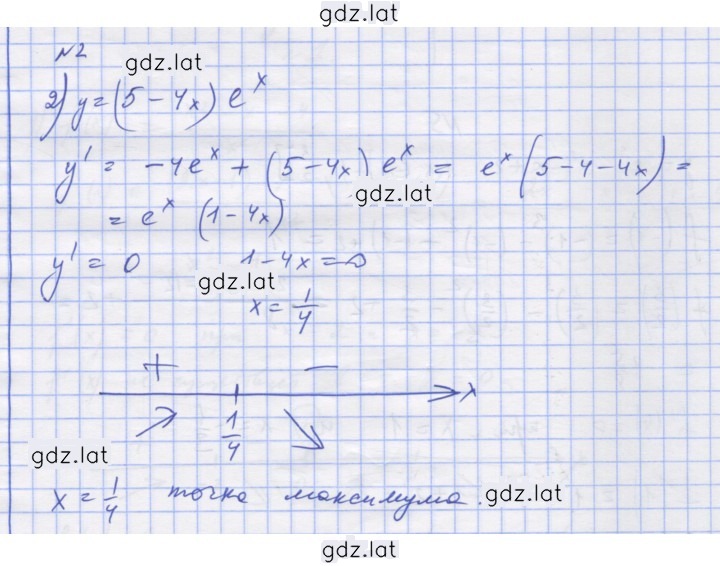 gdz.lat
№2
gdz.lat
2) y = (5 - 4x) e^x
y' = -4e^x + (5 - 4x) e^x = e^x (5 - 4 - 4x) =
gdz.lat
= e^x (1 - 4x)
y' = 0    1 - 4x = 0
gdz.lat
x = 1/4
+ − x
1/4
gdz.lat
x = 1/4 точка максимума.
gdz.lat
gdz.lat